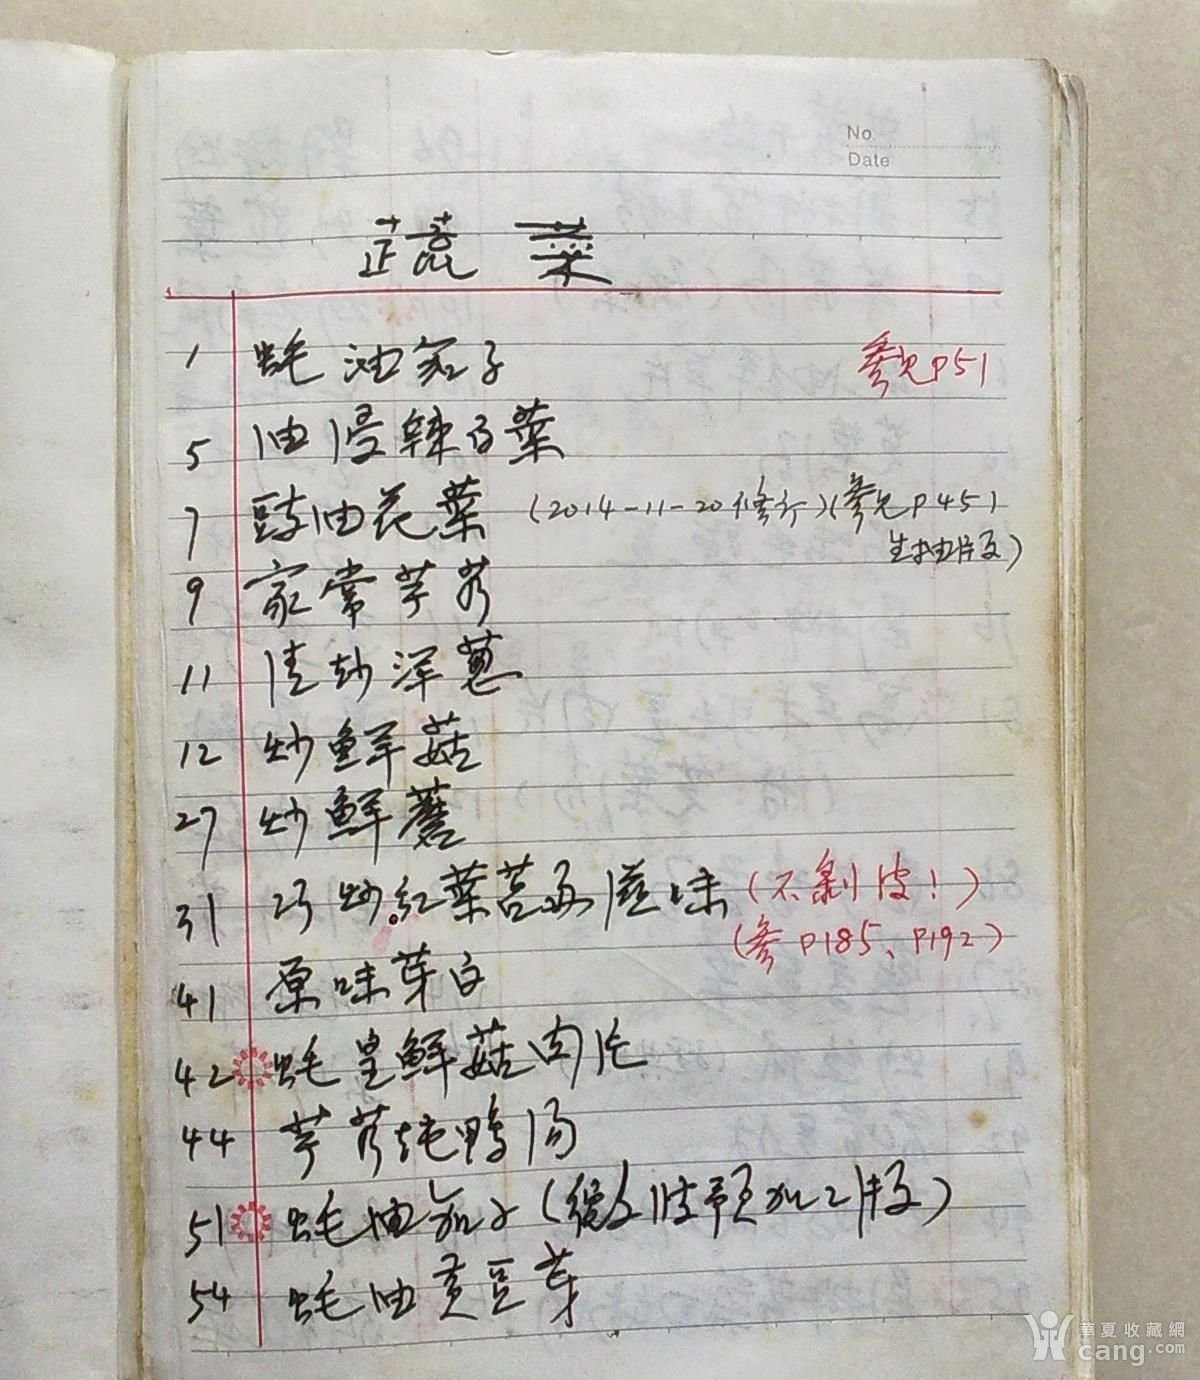 No.
Date
蔬菜
1 蚝油茄子 参见P51
5 油浸辣百葉
7 豉油花菜 (2014-11-20修订)(参见P45)
生抽版)
9 家常芋艿
11 清炒洋葱
12 炒鲜菇
27 炒鲜蘑
31 巧炒红菜苔 滋味 (不剥皮!)
(参P185、P192)
41 原味芽白
42 蚝皇鲜菇肉片
44 芋艿炖鸭汤
51 蚝油茄子(微波预加工版)
54 蚝油黄豆芽
華夏收藏網
cang.com